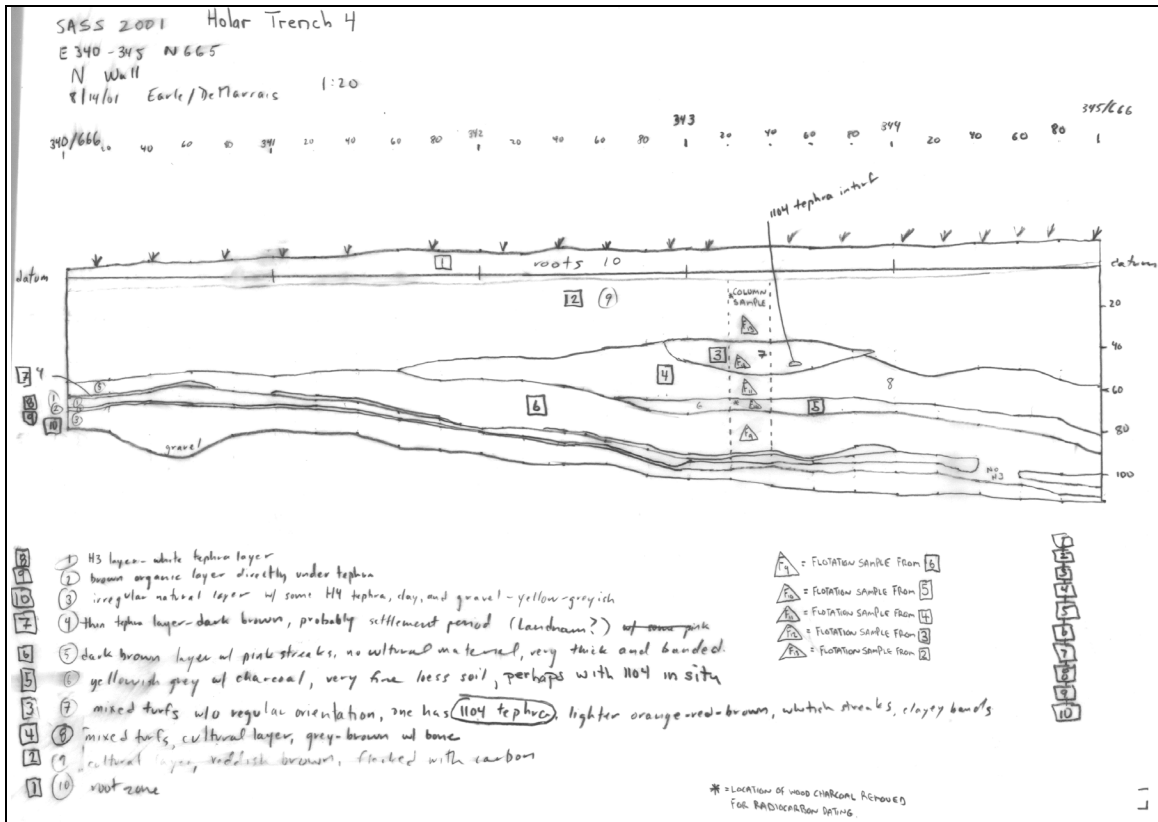 SASS 2001 Holar Trench 4
E 340-345 N 665
N Wall
8/14/01 Earle/DeMarrais 1:20
340/666 20 40 60 80 341 20 40 60 80 342 20 40 60 80 343 20 40 60 80 344 20 40 60 80 345/666
1104 tephra in turf
datum 1 roots 10 datum
12 9 COLUMN SAMPLE 20
F13
3 F12 7 40
7 4 5 4 F11 8 60
8 1 1 6 6 * F10 5
9 2 2
10 3 F9 80
gravel NO H3 100
8 1 H3 layer - white tephra layer
9 2 brown organic layer directly under tephra
10 3 irregular natural layer w/ some H4 tephra, clay, and gravel - yellow-greyish
7 4 thin tephra layer - dark brown, probably settlement period (Landnam?) w/ some pink
6 5 dark brown layer w/ pink streaks, no cultural material, very thick and banded.
5 6 yellowish grey w/ charcoal, very fine loess soil, perhaps with 1104 in situ
3 7 mixed turfs w/o regular orientation, one has 1104 tephra, lighter orange-red-brown, whitish streaks, clayey bands
4 8 mixed turfs, cultural layer, grey-brown w/ bone
2 9 cultural layer, reddish brown, flecked with carbon
1 10 root zone
F9 = FLOTATION SAMPLE FROM 6
F10 = FLOTATION SAMPLE FROM 5
F11 = FLOTATION SAMPLE FROM 4
F12 = FLOTATION SAMPLE FROM 3
F13 = FLOTATION SAMPLE FROM 2
1
2
3
4
5
6
7
8
9
10
* = LOCATION OF WOOD CHARCOAL REMOVED
FOR RADIOCARBON DATING.